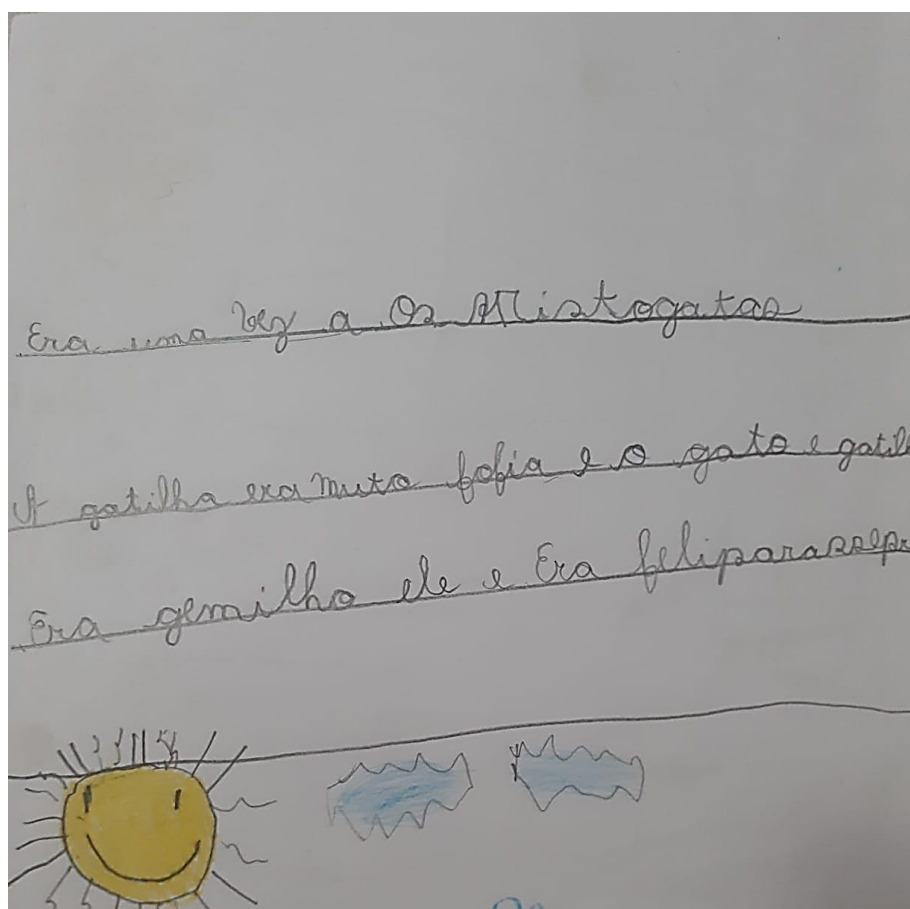 Era uma vez a Os Mistogatas
A gatilha era muto fofia e o gato e gatilh
Era gemilho ele e Era feliparassepr